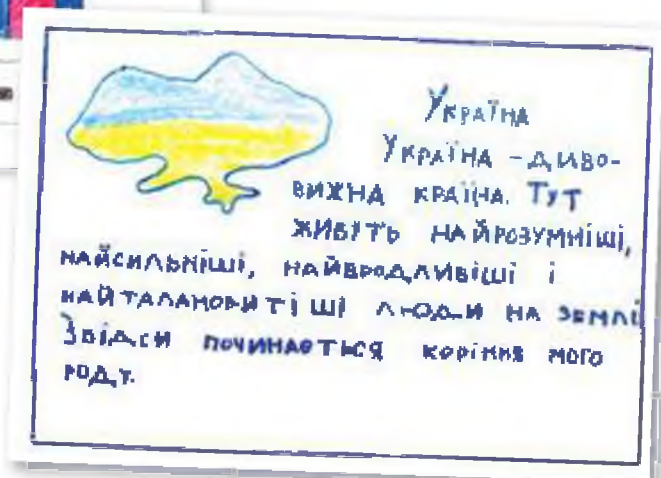 Україна
Україна - диво-
вижна країна. Тут
живуть найрозумніші,
найсильніші, найвродливіші і
найталановитіші люди на землі
Звідси починається коріння мого
роду.